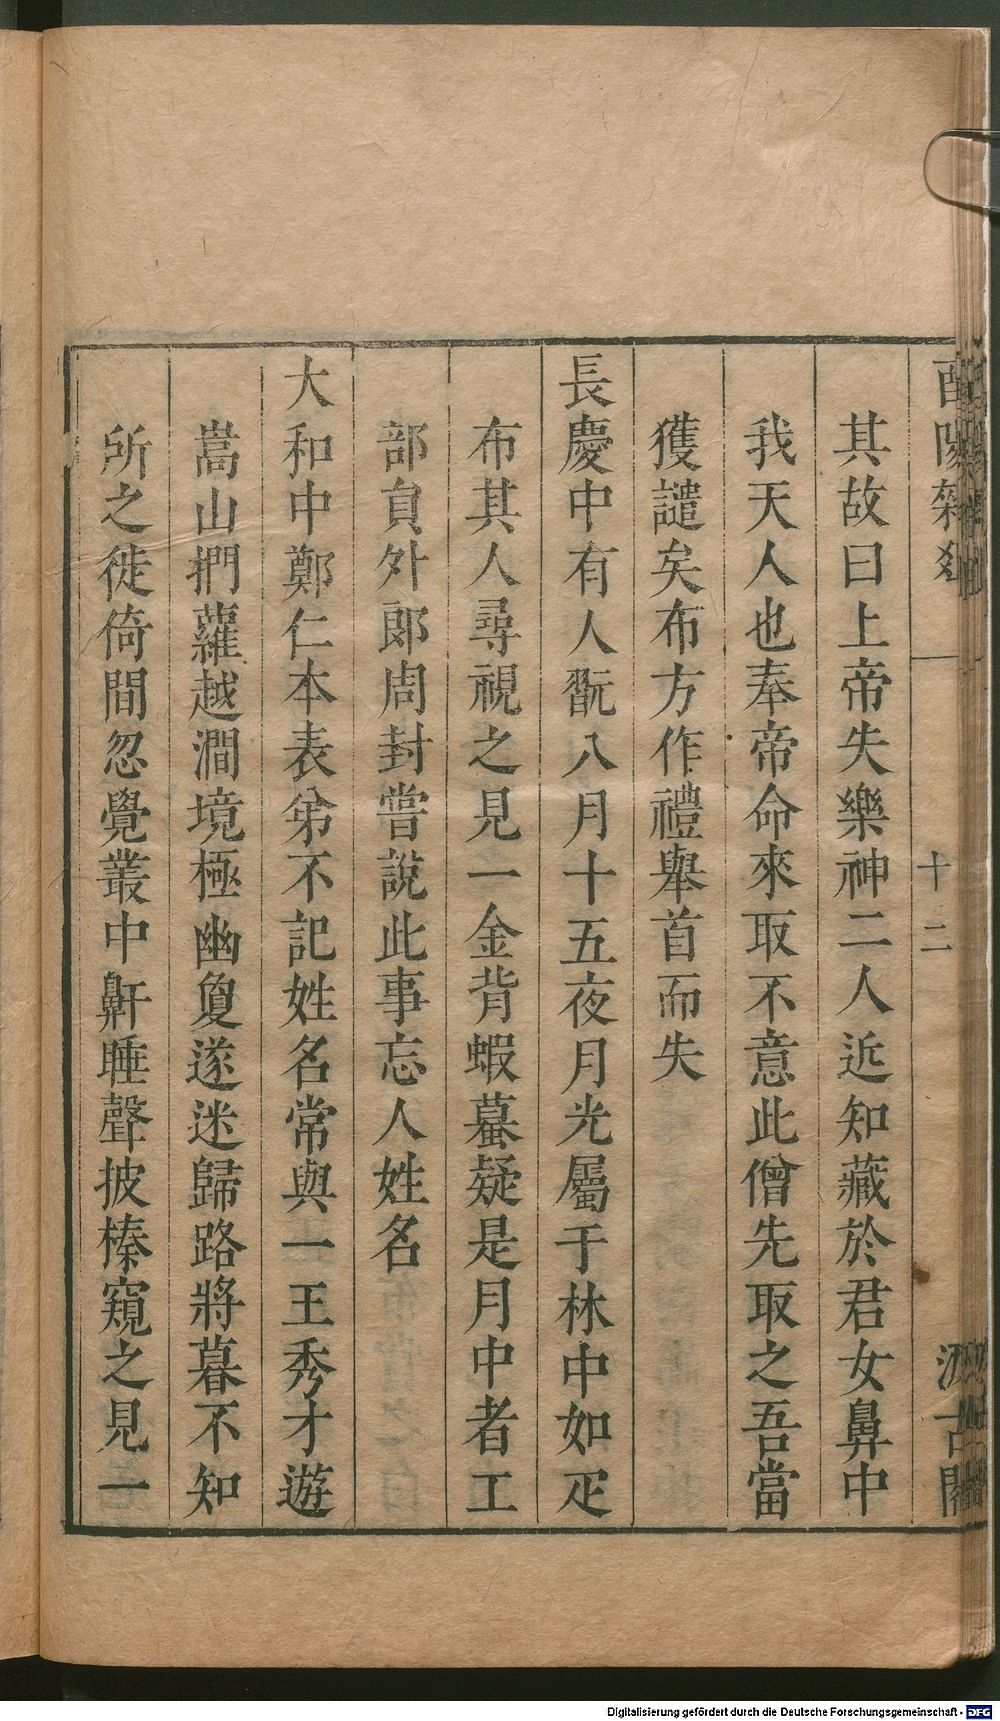 酉陽雜
十二
汲古閣
其故曰上帝失樂神二人近知藏於君女鼻中
我天人也奉帝命來取不意此僧先取之吾當
獲譴矣布方作禮舉首而失
長慶中有人翫八月十五夜月光屬于林中如疋
布其人尋視之見一金背蝦蟇疑是月中者工
部員外郎周封嘗說此事忘人姓名
大和中鄭仁本表弟不記姓名常與一王秀才遊
嵩山捫蘿越澗境極幽敻遂迷歸路將暮不知
所之徙倚間忽覺叢中鼾睡聲披榛窺之見一
Digitalisierung gefördert durch die Deutsche Forschungsgemeinschaft - DFG